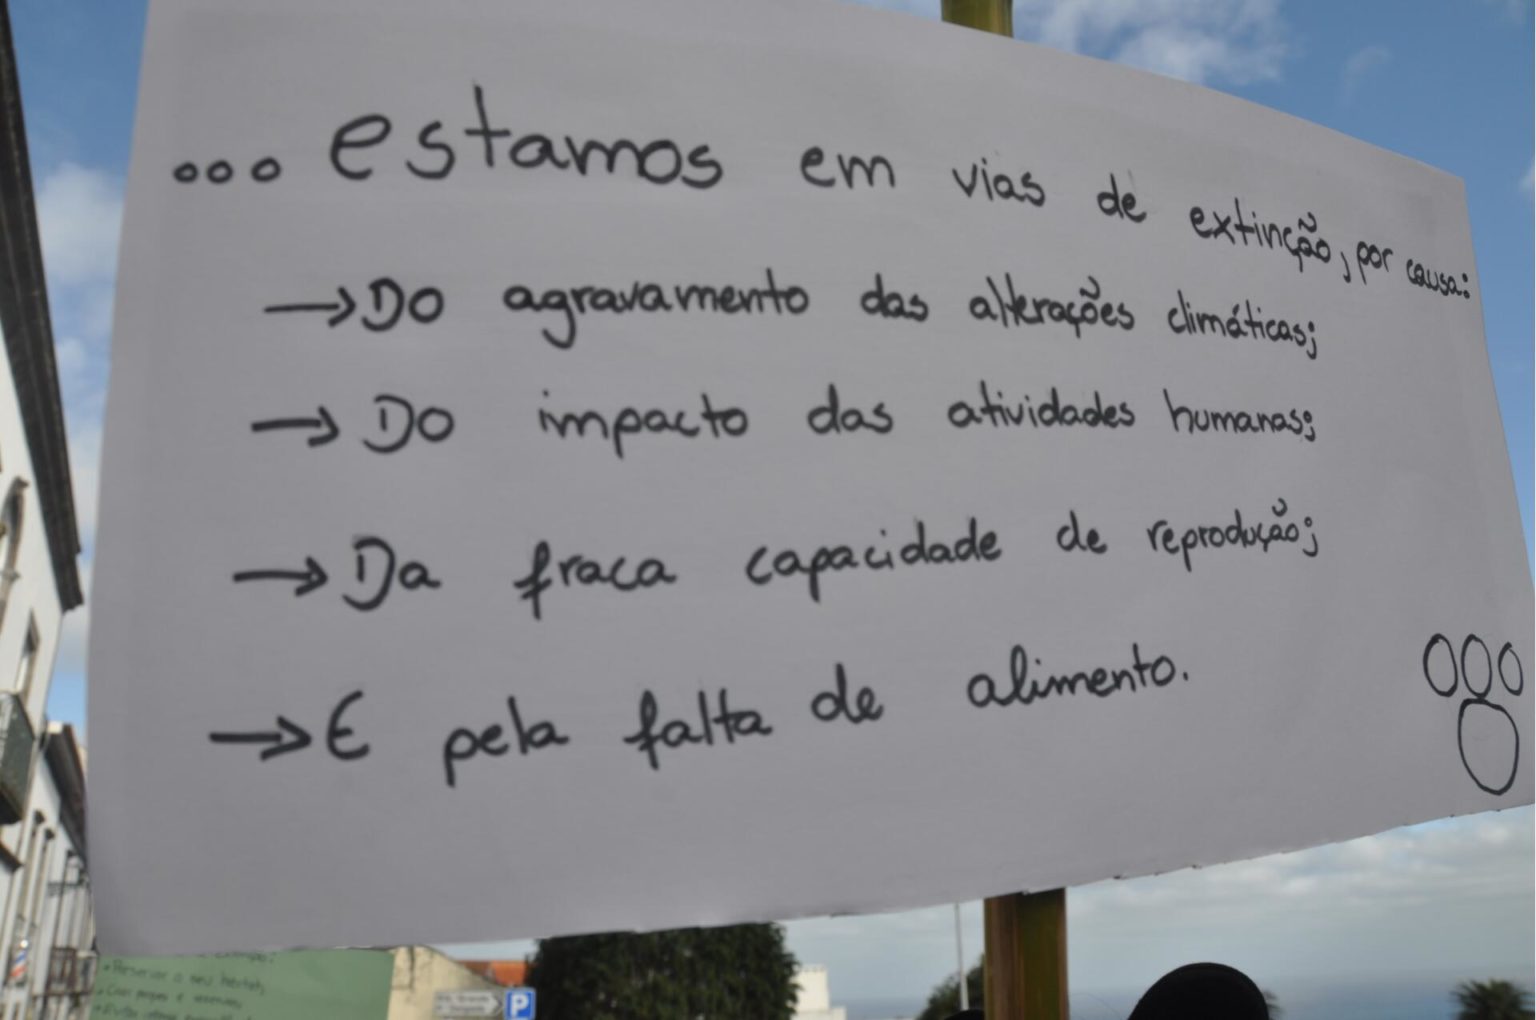 ... estamos em vias de extinção, por causa:
→ Do agravamento das alterações climáticas;
→ Do impacto das atividades humanas;
→ Da fraca capacidade de reprodução;
→ E pela falta de alimento.
• Preservar o seu
• Criar
P